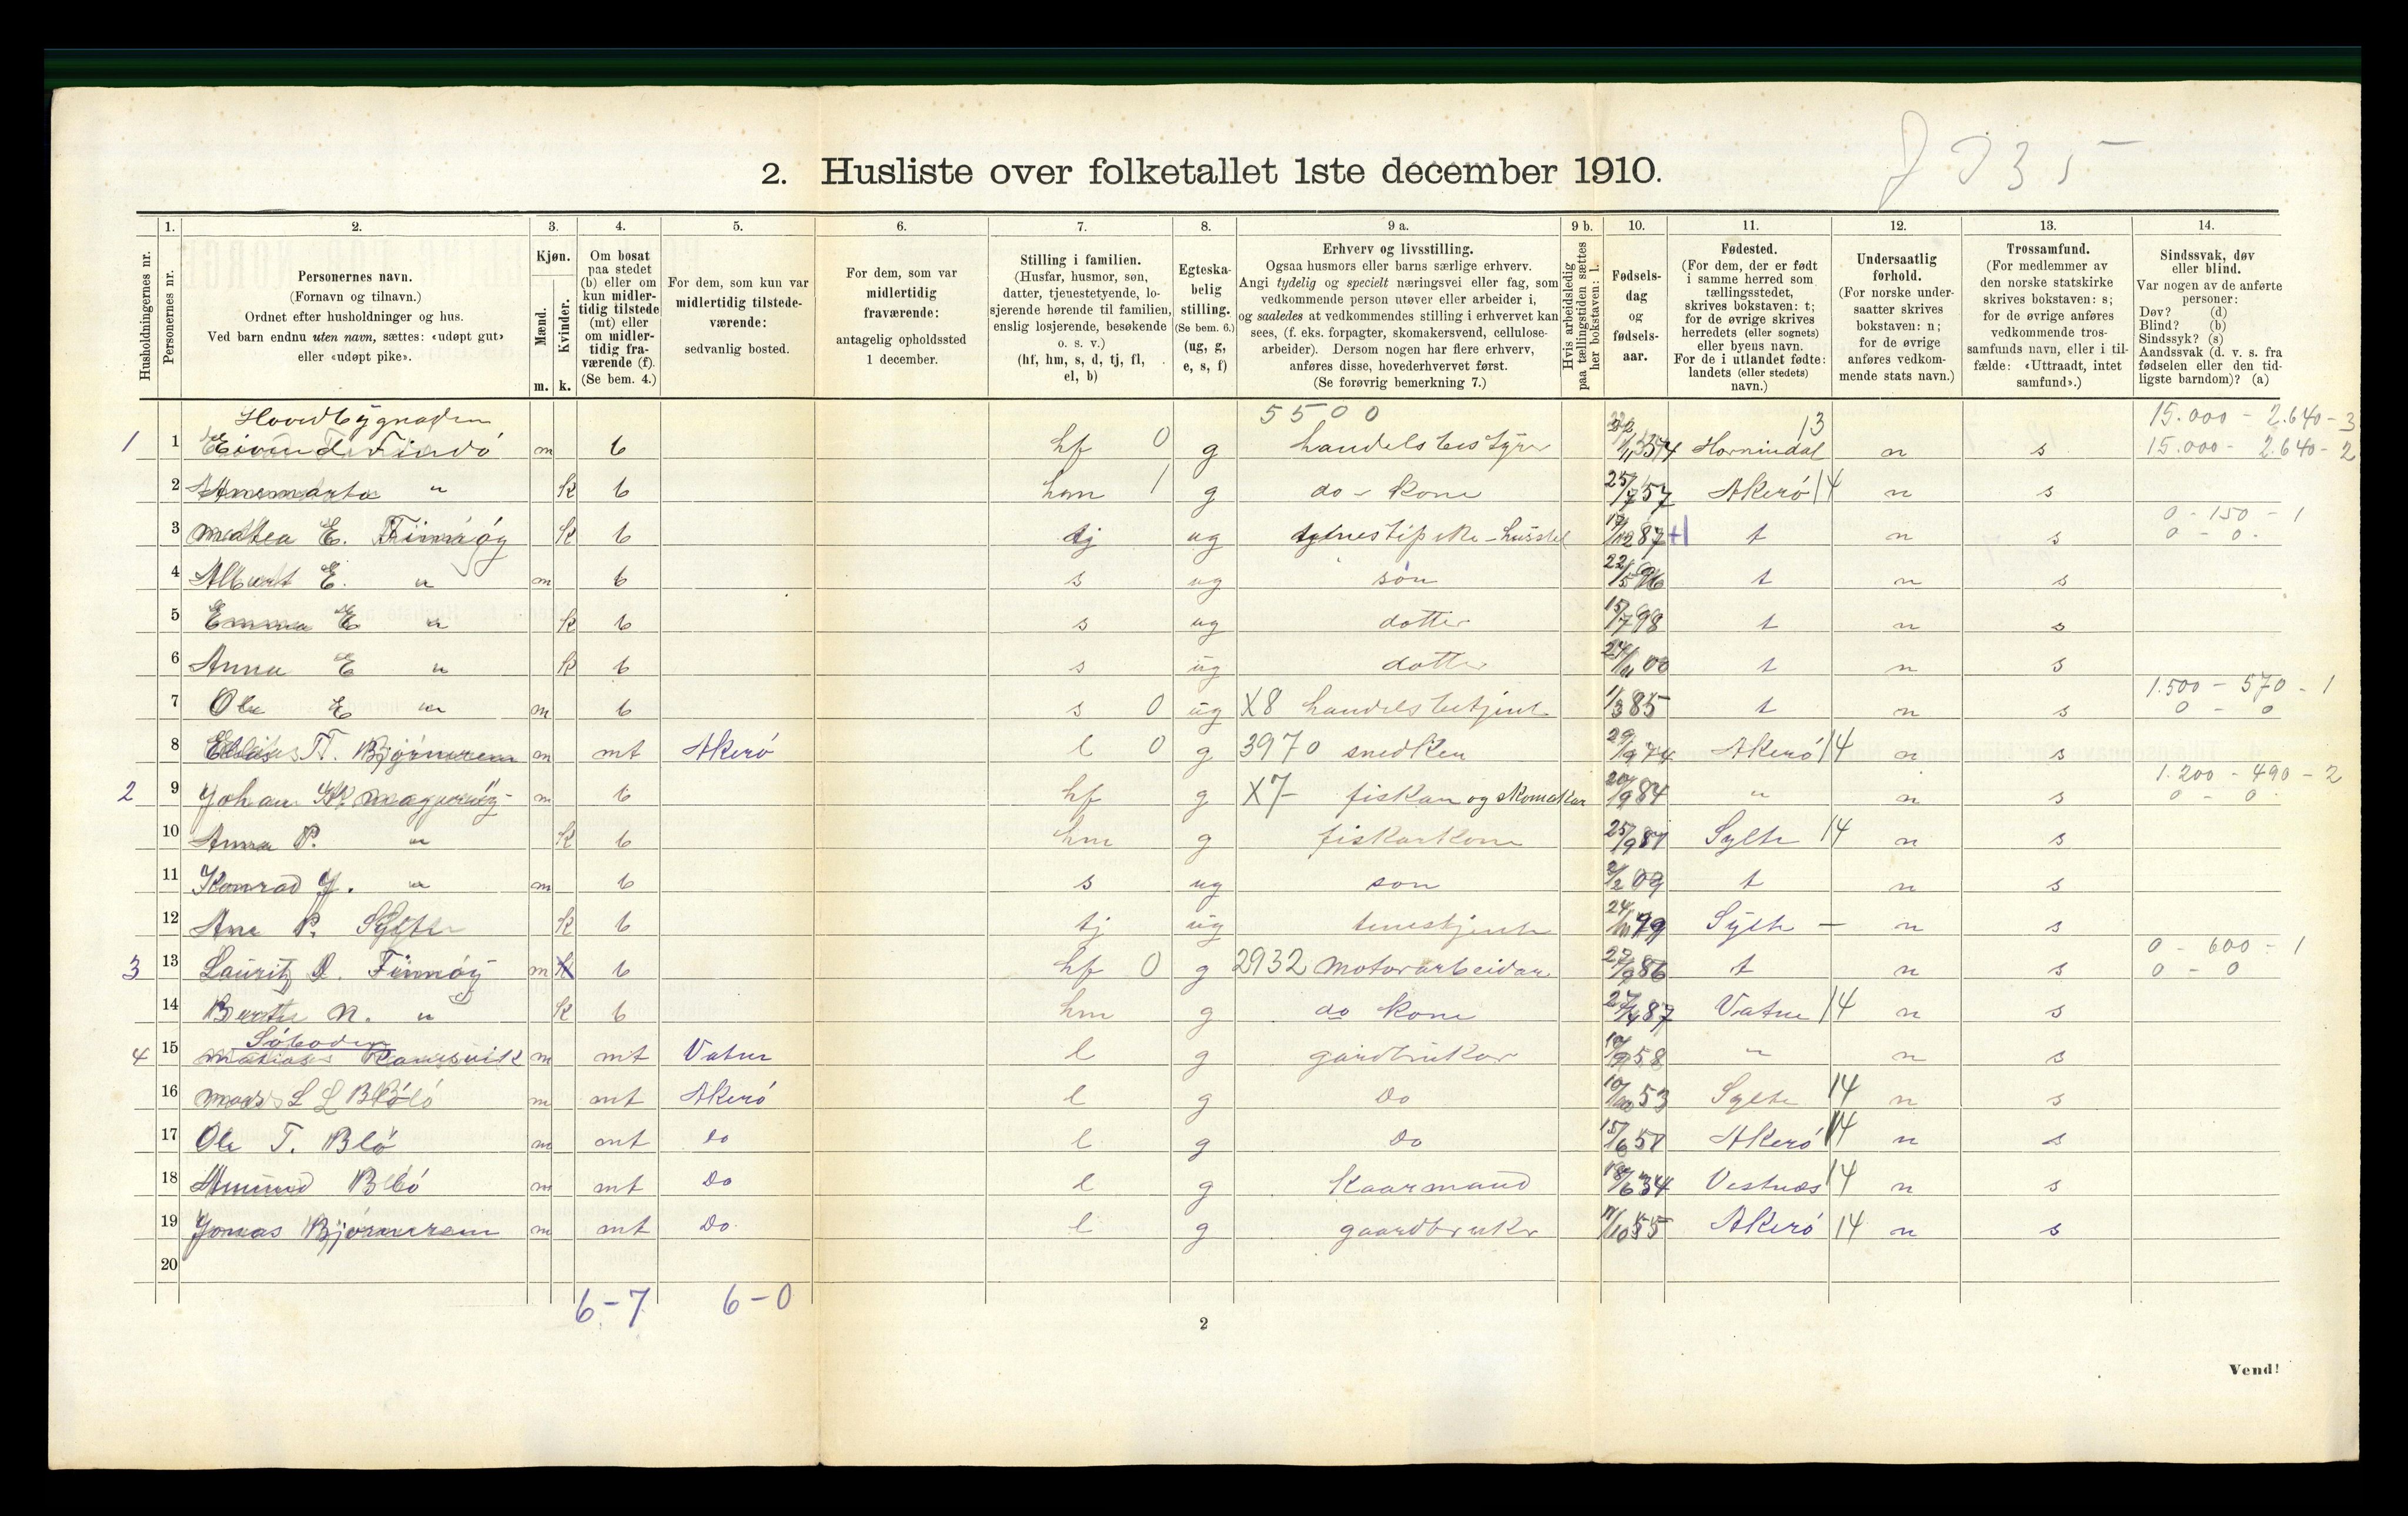 2. Husliste over folketallet 1ste december 1910.
1. 2. 3. 4. 5. 6. 7. 8. 9 a. 9 b. 10. 11. 12. 13. 14.
Husholdningernes nr.
Personernes nr.
Personernes navn.
(Fornavn og tilnavn.)
Ordnet efter husholdninger og hus.
Ved barn endnu uten navn, sættes: «udøpt gut»
eller «udøpt pike».
Kjøn.
Mænd.
Kvinder.
m. k.
Om bosat
paa stedet
(b) eller om
kun midler-
tidig tilstede
(mt) eller
om midler-
tidig fra-
værende (f).
(Se bem. 4.)
For dem, som kun var
midlertidig tilstede-
værende:
sedvanlig bosted.
For dem, som var
midlertidig
fraværende:
antagelig opholdssted
1 december.
Stilling i familien.
(Husfar, husmor, søn,
datter, tjenestetyende, lo-
sjerende hørende til familien,
enslig losjerende, besøkende
o. s. v.)
(hf, hm, s, d, tj, fl,
el, b)
Egteska-
belig
stilling.
(Se bem. 6.)
(ug, g,
e, s, f)
Erhverv og livsstilling.
Ogsaa husmors eller barns særlige erhverv.
Angi tydelig og specielt næringsvei eller fag, som
vedkommende person utøver eller arbeider i,
og saaledes at vedkommendes stilling i erhvervet kan
sees, (f. eks. forpagter, skomakersvend, cellulose-
arbeider). Dersom nogen har flere erhverv,
anføres disse, hovederhvervet først.
(Se forøvrig bemerkning 7.)
Hvis arbeidsledig
paa tællingstiden sættes
her bokstaven: l.
Fødsels-
dag
og
fødsels-
aar.
Fødested.
(For dem, der er født
i samme herred som
tællingsstedet,
skrives bokstaven: t;
for de øvrige skrives
herredets (eller sognets)
eller byens navn.
For de i utlandet fødte:
landets (eller stedets)
navn.)
Undersaatlig
forhold.
(For norske under-
saatter skrives
bokstaven: n;
for de øvrige
anføres vedkom-
mende stats navn.)
Trossamfund.
(For medlemmer av
den norske statskirke
skrives bokstaven: s;
for de øvrige anføres
vedkommende tros-
samfunds navn, eller i til-
fælde: «Uttraadt, intet
samfund».)
Sindssvak, døv
eller blind.
Var nogen av de anførte
personer:
Døv? (d)
Blind? (b)
Sindssyk? (s)
Aandssvak (d. v. s. fra
fødselen eller den tid-
ligste barndom)? (a)
Hovedbygnaden 5500 13 15.000 - 2.640 - 3
1 1 m b hf 0 g handelsbestyrer Hornindal n s 15.000 - 2.640 - 2
2 " k b hm 1 g do - kone 25/7 57 Akerö 14 n s
0 - 150 - 1
3 Mattea E. Finnøy k b tj ug 87 t n s 0 - 0
4 Albert E. " m b s ug søn 22/5 96 t n s
5 Emma E " k b s ug dotter 15/7 98 t n s
6 Anna E " k b s ug dotter 00 t n s
1.500 - 570 - 1
7 Ole E " m b s 0 ug X8 handelsbetjent 1/3 85 t n s 0 - 0
8 Bjørnerem m mt Akerö l 0 g 3970 snedker 29/9 74 Akerö 14 n s
1.200 - 490 - 2
2 9 Johan m b hf g X7- fiskar og skomakar 84 " n s 0 - 0
10 Anna P. " k b hm g fiskarkone 25/9 Sylte 14 n s
11 Konrad J. " m b s ug son 09 t n s
12 Ane P. Sylte k b tj ug tenestjente 79 Sylte - n s
0 - 600 - 1
3 13 Lauritz Finnøy m k b hf 0 g 2932 Motorarbeidar 86 t n s 0 - 0
14 Berthe N. " k b hm g do kone 87 Vatne 14 n s
Søboden
4 15 Ramsvik m mt Vatne l g gardbrukar 58 " n s
16 m mt Akerö l g Do 53 Sylte 14 n s
17 Ole T. Blø m mt do l g Do Akerö 14 n s
18 Amund Blø m mt Do l g Kaarmand 34 Vestnes 14 n s
19 Jonas Bjørnerem m mt Do l g gaardbruker 55 Akerö 14 n s
20
6-7 6-0
2
Vend!